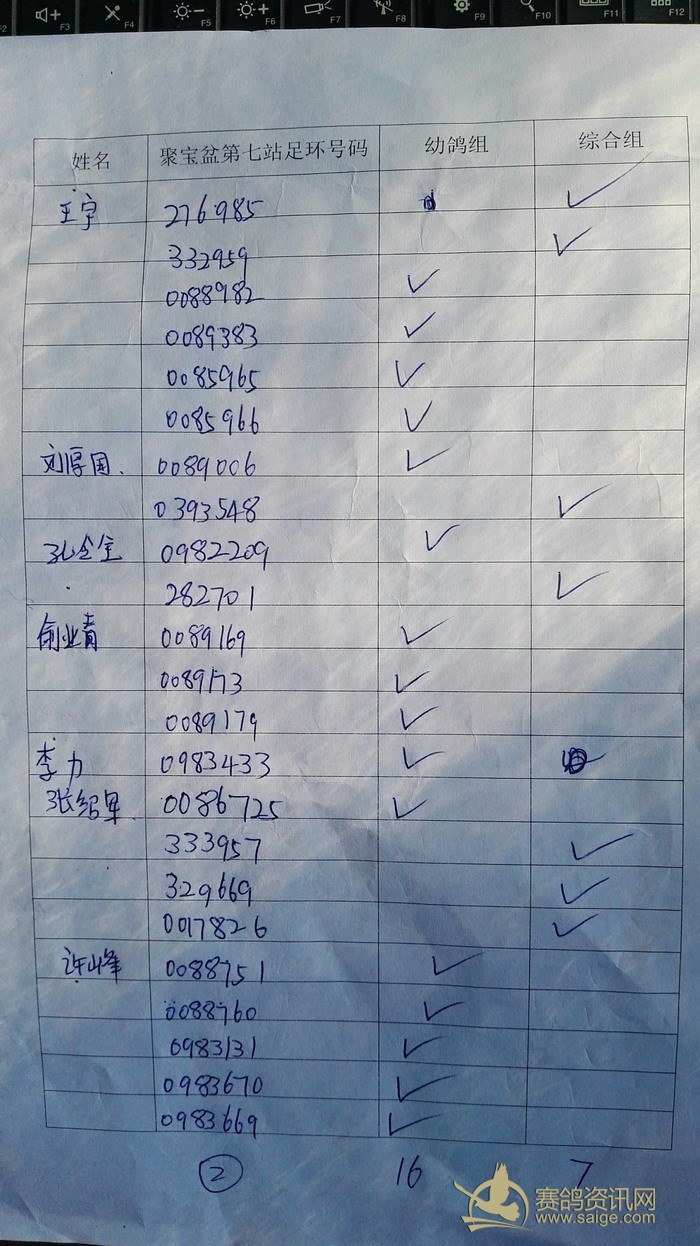 F3 F4 F5 F6 F7 F8 F9 F10 F11 F12
姓名 聚宝盆第七站足环号码 幼鸽组 综合组
王宇 276985 ✓
332959 ✓
0088982 ✓
0089383 ✓
0085965 ✓
0085966 ✓
刘厚国. 0089006 ✓
0393548 ✓
孔令全 0982209 ✓
282701 ✓
俞业青 0089169 ✓
0089173 ✓
0089179 ✓
李力 0983433 ✓
张绍军 0086725 ✓
333957 ✓
329669 ✓
0017826 ✓
许峰 0088751 ✓
0088760 ✓
0983131 ✓
0983670 ✓
0983669 ✓
② 16 7
赛鸽资讯网
www.saige.com